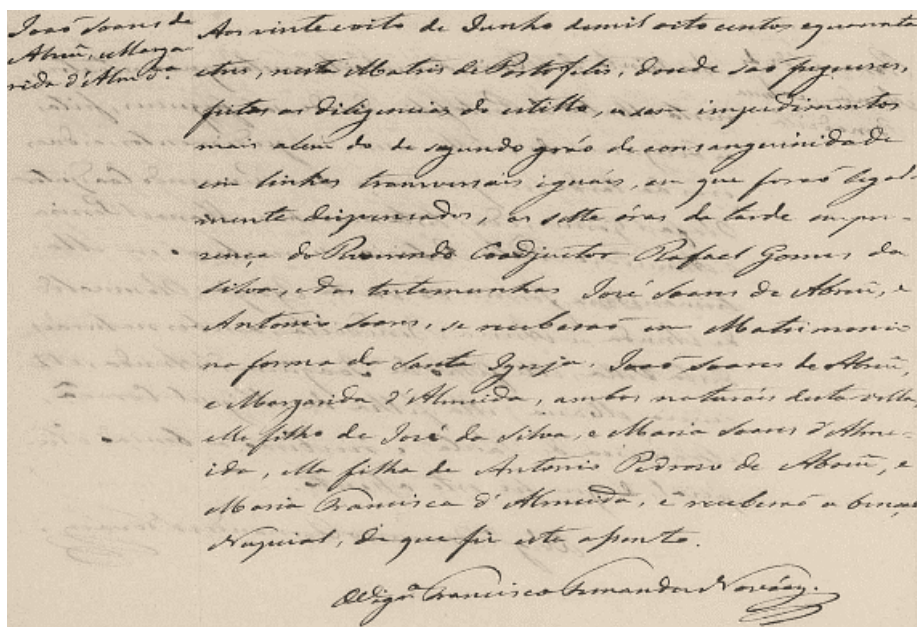 João Soares de
Abreũ, e Marga
rida d'Almda.
Aos vinte e oito de Junho de mil oito centos e quarenta
e tres, nesta Matris de Portofelis, donde são freguezes,
feitas as diligencias do estillo, e sem impedimentos
mais alem do de segundo gráo de consanguinidade
em linhas transversais iguáis, em que forão legal-
mente dispensados, as sette óras da tarde em pre-
zença do Reverendo Coadjuctor Rafael Gomes da
Silva, e das testemunhas José Soares de Abreũ, e
Antonio Soares, se receberaõ em Matrimonio
na forma da Santa Igreja, João Soares de Abreũ,
e Margarida d'Almeida, ambos naturáis desta villa
elle filho de José da Silva, e Maria Soares d'Alme-
ida, ella filha de Antonio Pedroso de Abreũ, e
Maria Francisca d'Almeida, e receberaõ a bençaõ
Nupcial, de que fiz este asento.
O Vigro Francisco Fernandes Nováes.